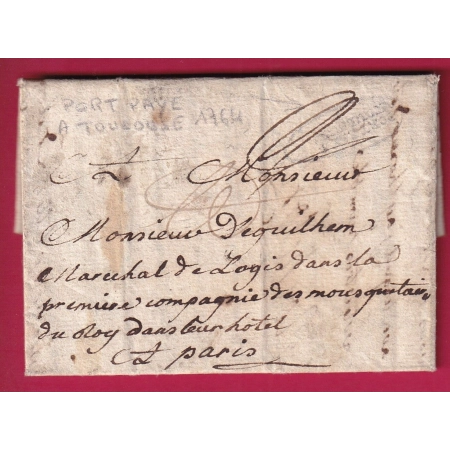 PORT PAYE
A TOULOUSE 1764
A Monsieur
Monsieur Dequilhem
Marechal de Logis dans la
premiere compagnie des mousquetaires
du Roy dans leur hotel
A paris